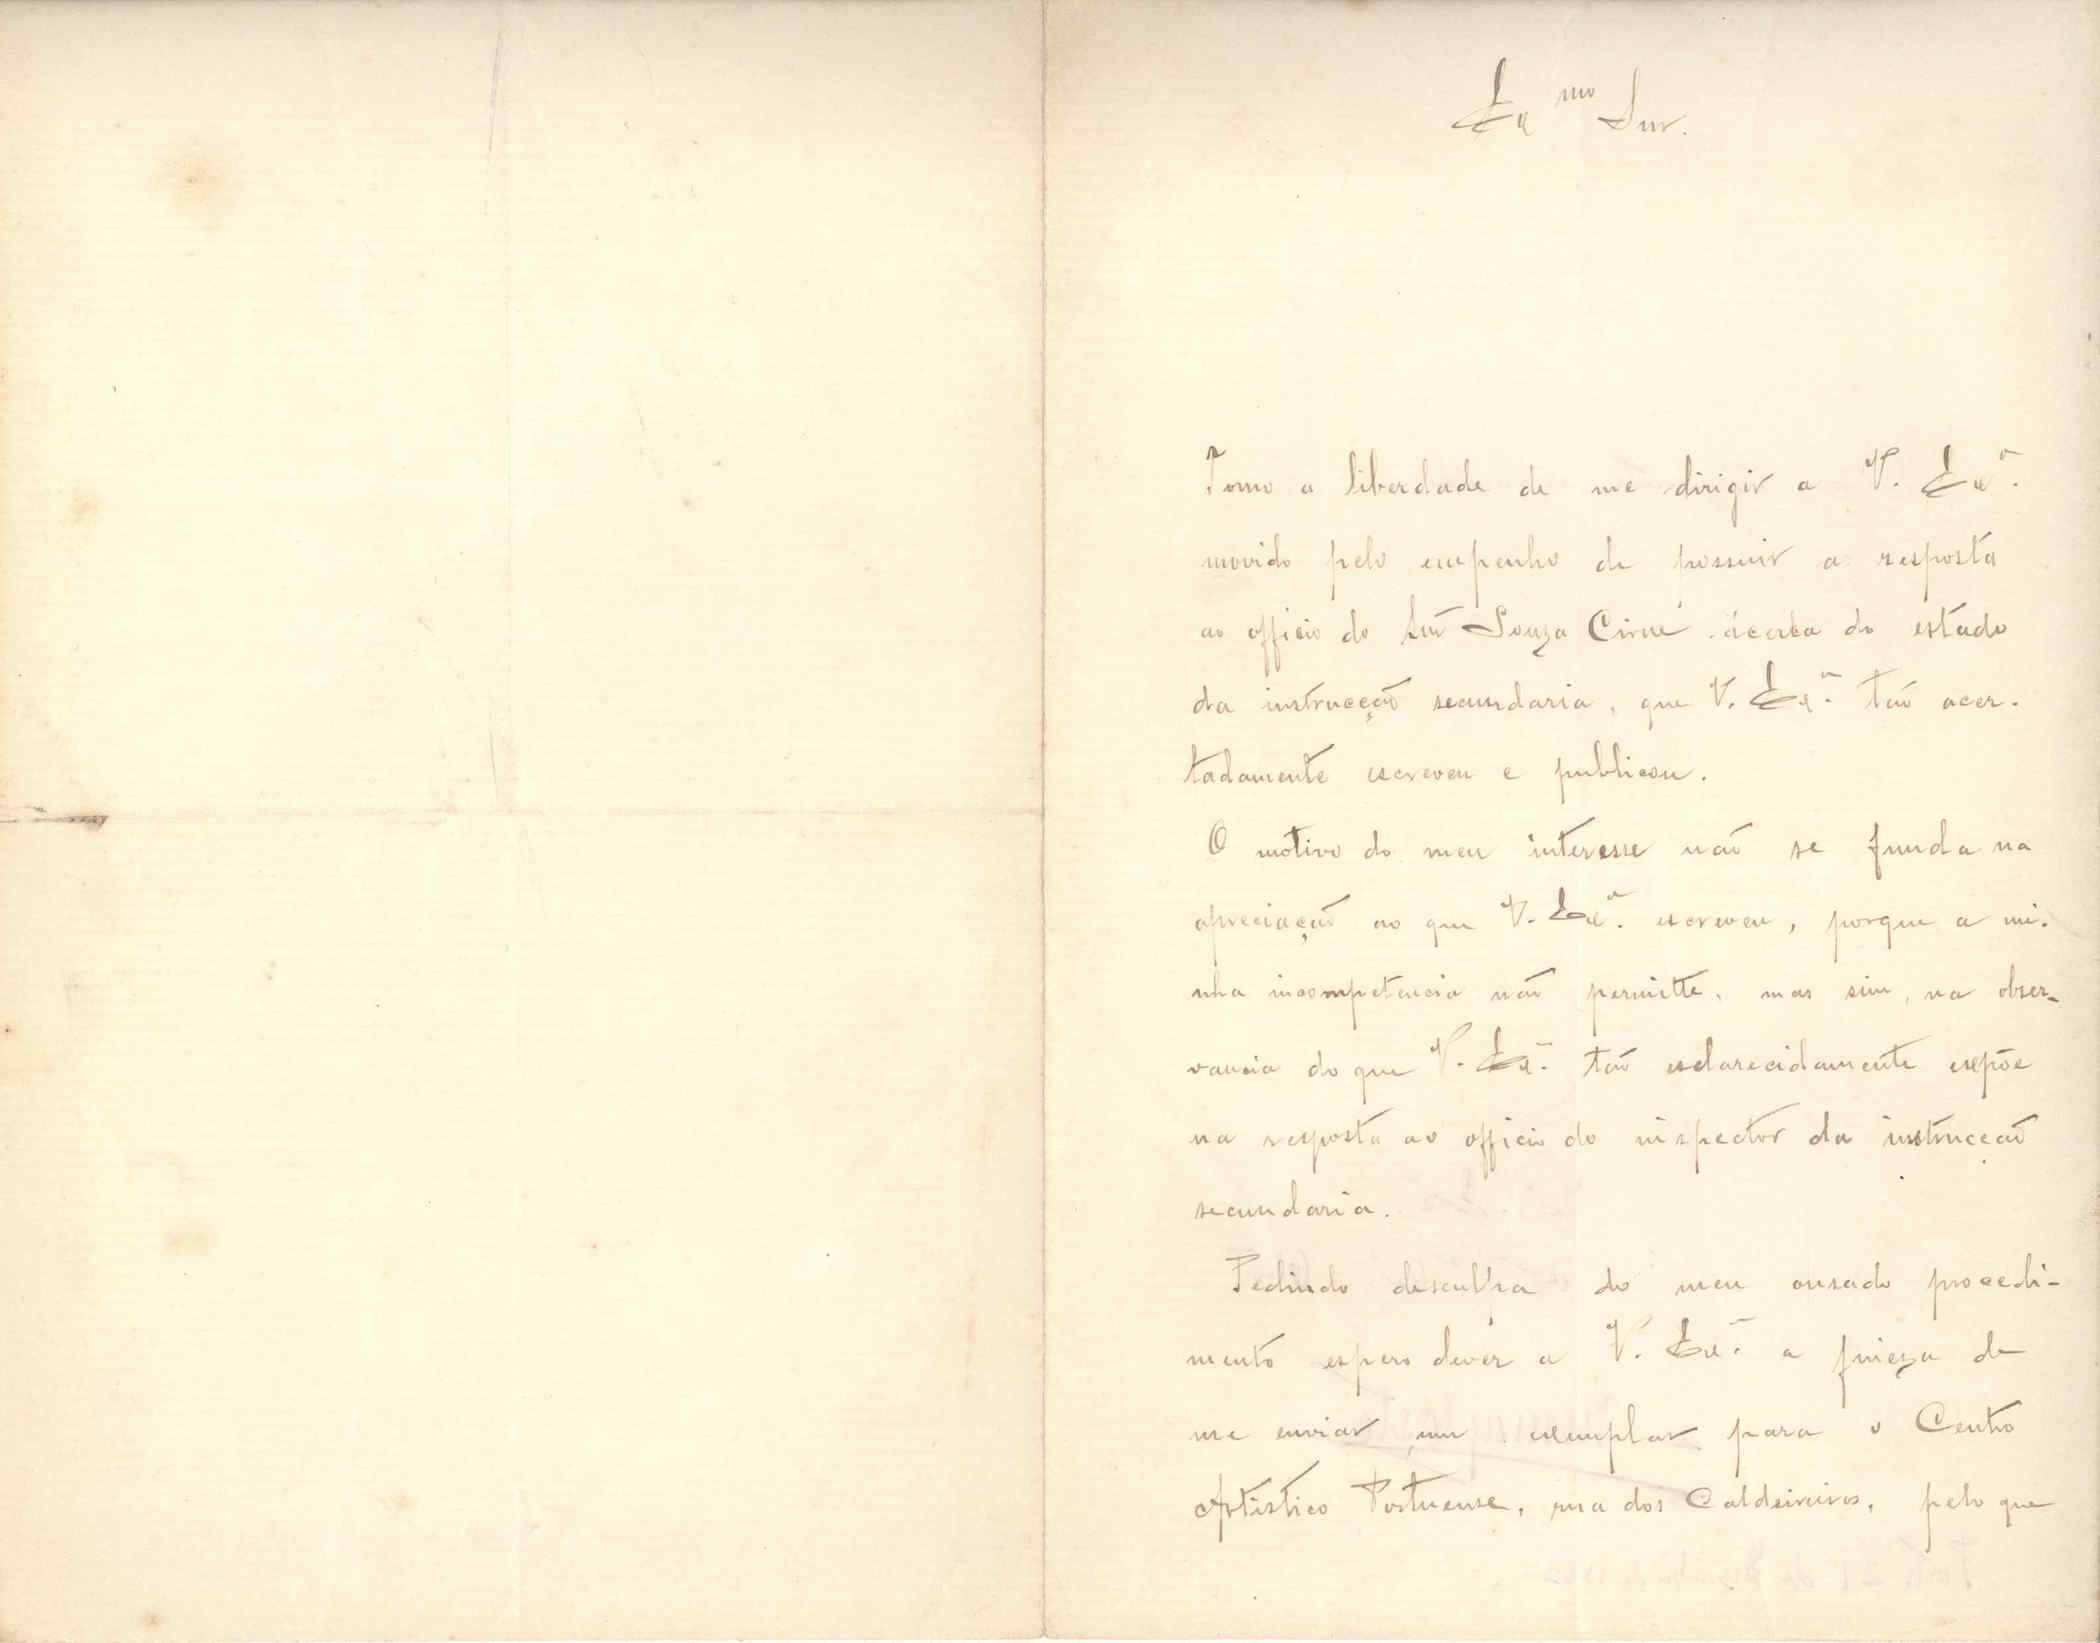 Ex mo Snr.
Tomo a liberdade de me dirigir a V. Ex.ª
movido pelo empenho de possuir a resposta
ao officio do Snr Souza Cirne ácerca do estado
da instrucção secundaria, que V. Ex.ª tão acer-
tadamente escreveu e publicou.
O motivo do meu interesse não se funda na
apreciação ao que V. Ex.ª escreveu, porque a mi-
nha incompetencia não permitte, mas sim, na obser-
vancia do que V. Ex.ª tão esclarecidamente expõe
na resposta ao officio do inspector da instrucção
secundaria.
Pedindo desculpa do meu ousado procedi-
mento espero dever a V. Ex.ª a fineza de
me enviar um exemplar para o Centro
Artistico Portuense, rua dos Caldeireiros, pelo que